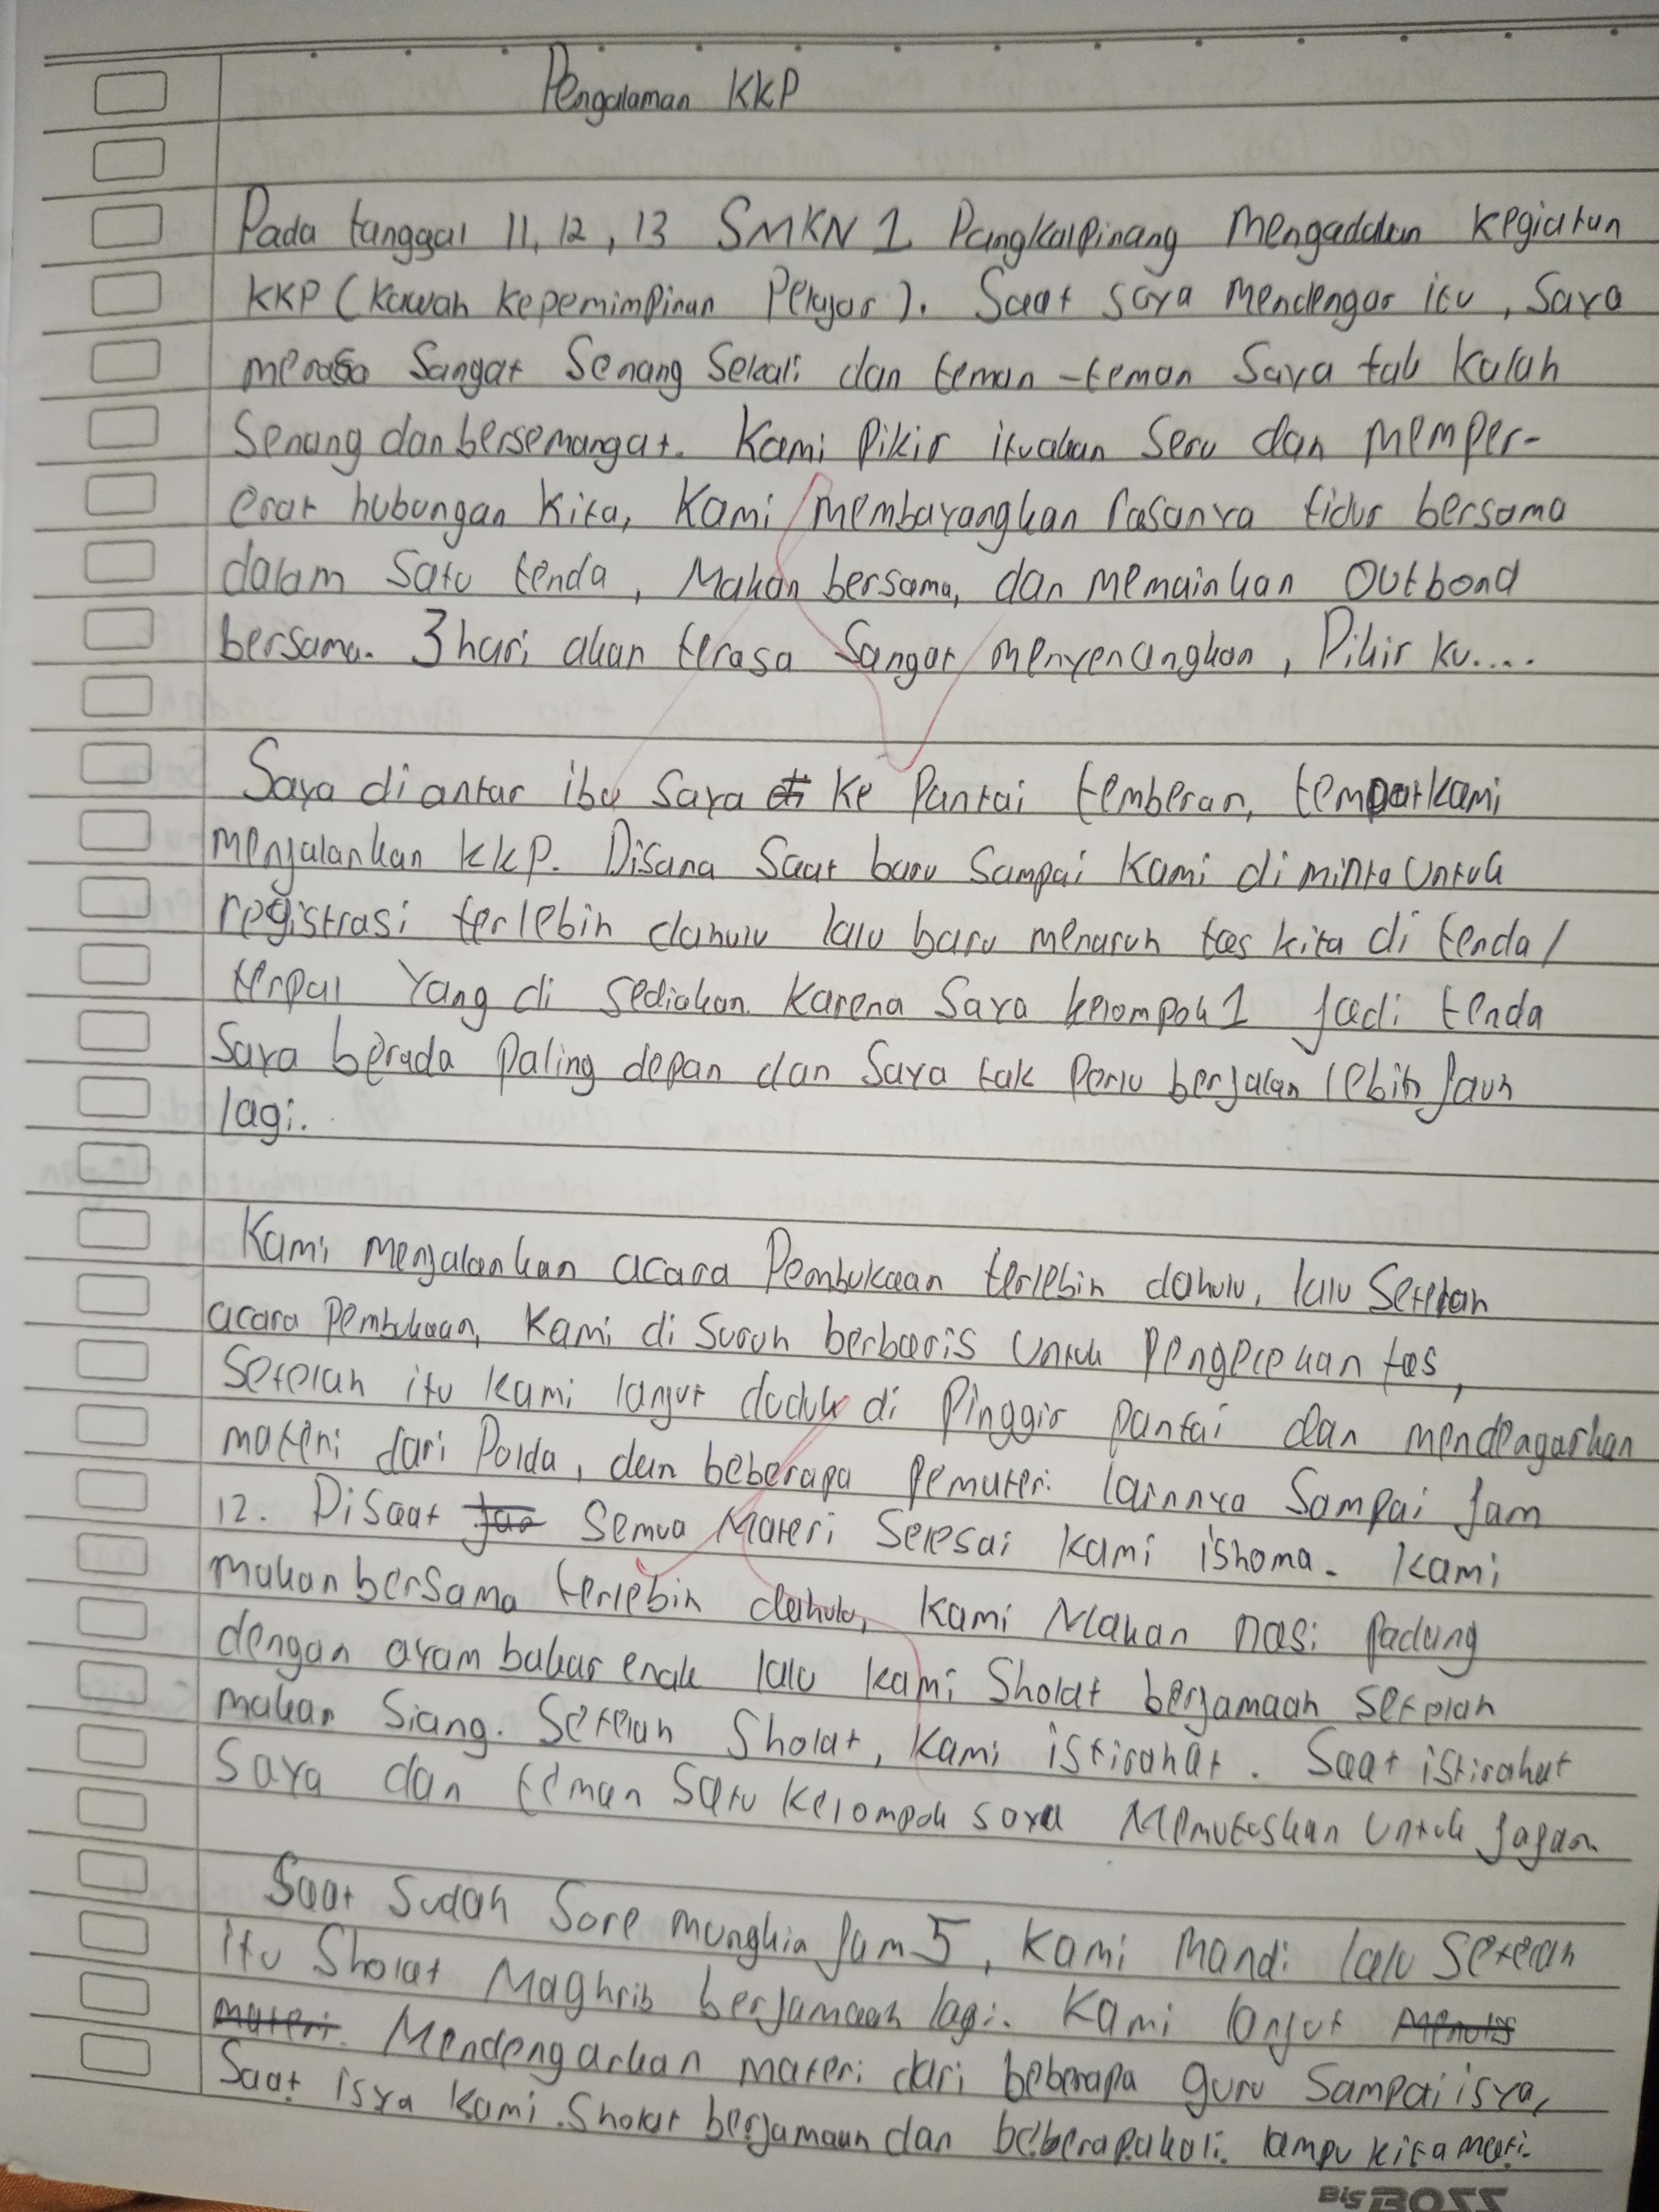 Pengalaman KKP
Pada tanggal 11, 12, 13 SMKN 1 Pangkalpinang mengadakan kegiatan
KKP (Kawah Kepemimpinan Pelajar). Saat saya mendengar itu, saya
merasa sangat senang sekali dan teman-teman saya tak kalah
senang dan bersemangat. Kami pikir itu akan seru dan memper-
erat hubungan kita, Kami membayangkan rasanya tidur bersama
dalam satu tenda, Makan bersama, dan memainkan Outbond
bersama. 3 hari akan terasa sangat menyenangkan, Pikir ku....
Saya di antar ibu saya ke Pantai temberan, tempat kami
menjalankan KKP. Disana Saat baru sampai kami di minta untuk
registrasi terlebih dahulu lalu baru menaruh tas kita di tenda/
terpal yang di sediakan. Karena Saya kelompok 1 jadi tenda
saya berada paling depan dan saya tak perlu berjalan lebih jauh
lagi.
Kami menjalankan acara Pembukaan terlebih dahulu, lalu setelah
acara pembukaan, Kami di suruh berbaris untuk pengecekan tas,
Setelah itu kami lanjut duduk di Pinggir pantai dan mendengarkan
materi dari Polda, dan beberapa pemateri lainnya sampai jam
12. Disaat semua Materi selesai kami ishoma. Kami
makan bersama terlebih dahulu, kami Makan nasi padang
dengan ayam bakar enak lalu kami Sholat berjamaah setelah
makan siang. Setelah Sholat, kami istirahat. Saat istirahat
saya dan teman satu kelompok saya Memutuskan untuk jajan.
Saat sudah sore mungkin jam 5, Kami mandi lalu setelah
itu Sholat Maghrib berjamaah lagi. Kami lanjut
Mendengarkan materi dari beberapa guru sampai isya,
Saat isya kami Sholat berjamaah dan beberapa kali lampu kita mati.
Big BOSS